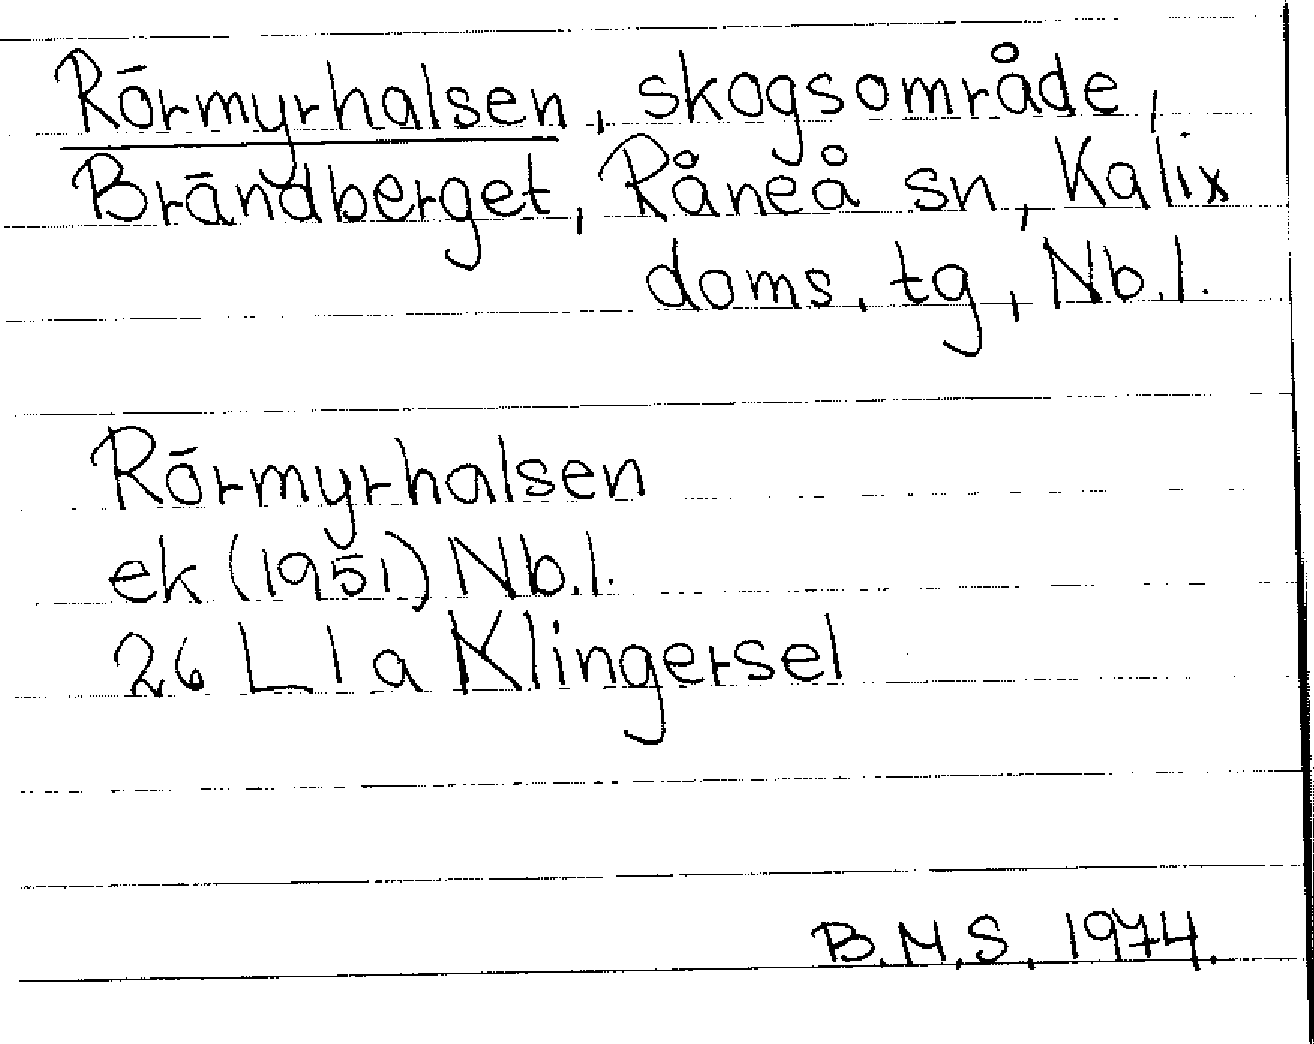 Rörmyrhalsen, skogsområde,
Brändberget, Råneå sn, Kalix
doms. tg, Nb.l.
Rörmyrhalsen
ek (1951) Nb.l.
26 L 1 a Klingersel
B.M.S. 1974.